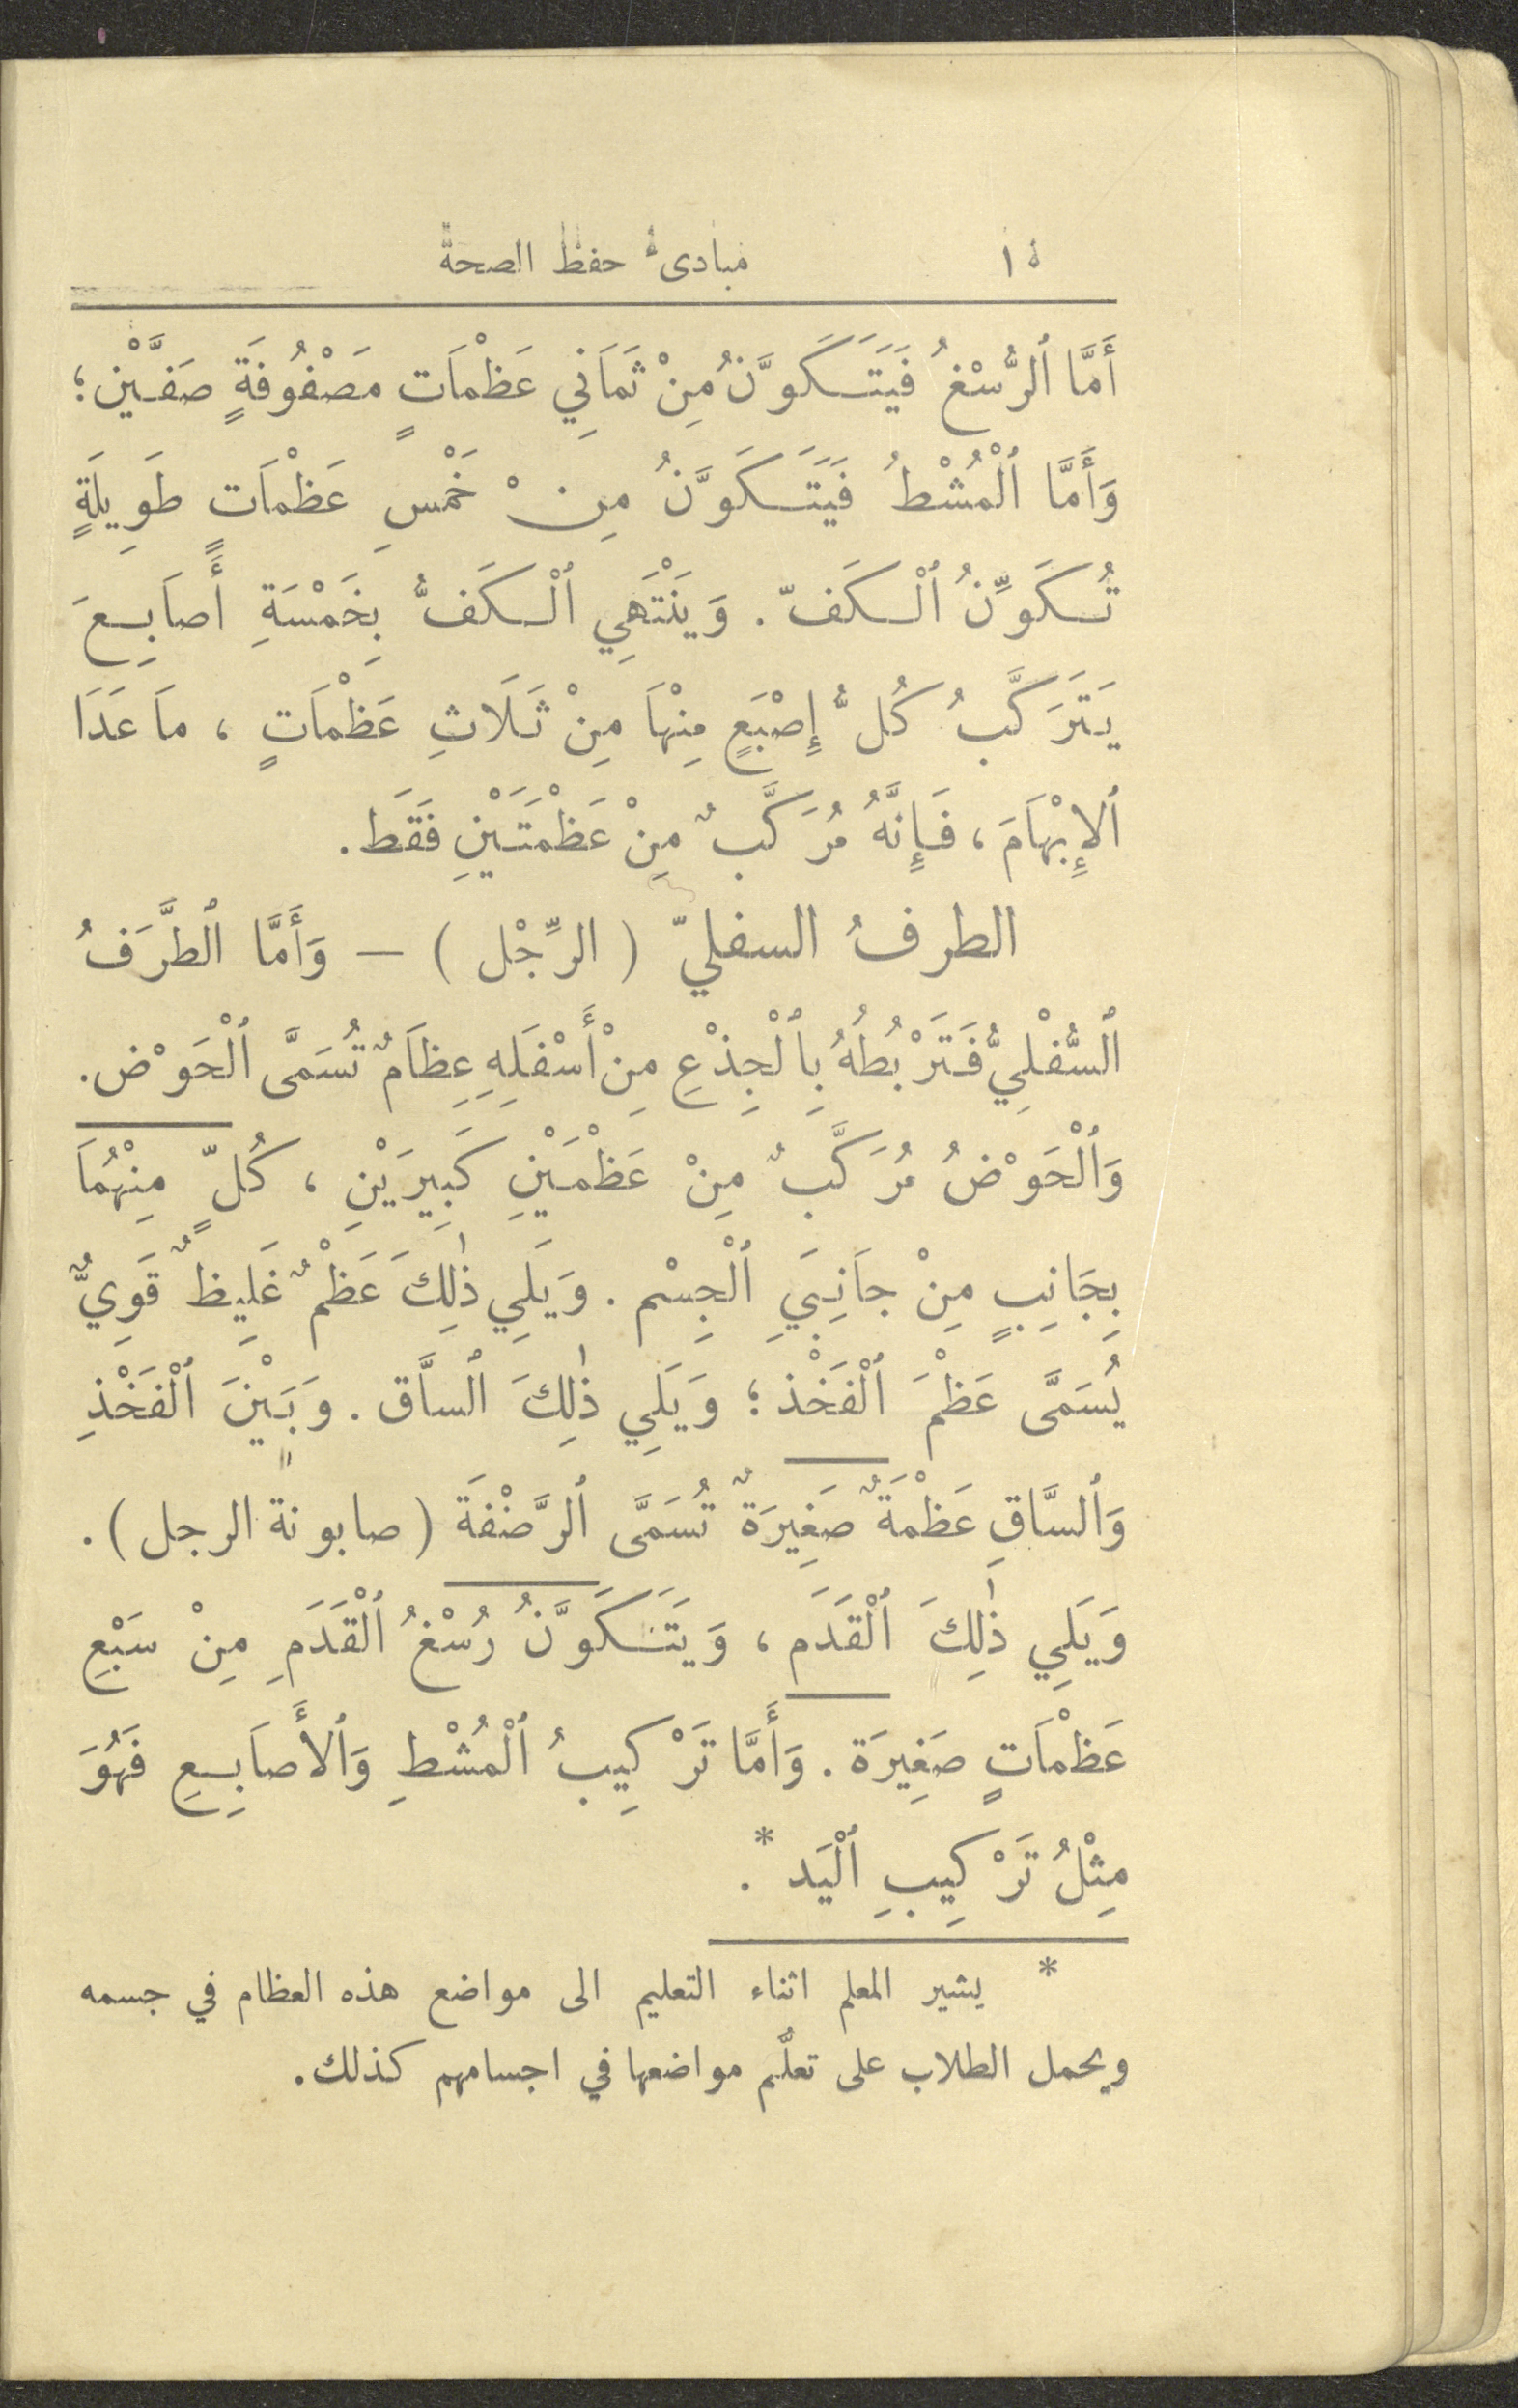 ١٥ مبادىء حفظ الصحة
أَمَّا ٱلرُّسْغُ فَيَتَكَوَّنُ مِنْ ثَمَانِي عَظْمَاتٍ مَصْفُوفَةٍ صَفَّيْنِ؛
وَأَمَّا ٱلْمُشْطُ فَيَتَكَوَّنُ مِنْ خَمْسِ عَظْمَاتٍ طَوِيلَةٍ
تُكَوِّنُ ٱلْكَفّ . وَيَنْتَهِي ٱلْكَفُّ بِخَمْسَةِ أَصَابِعَ
يَتَرَكَّبُ كُلُّ إِصْبَعٍ مِنْهَا مِنْ ثَلَاثِ عَظْمَاتٍ ، مَا عَدَا
ٱلإِبْهَامَ ، فَإِنَّهُ مُرَكَّبٌ مِنْ عَظْمَتَيْنِ فَقَط .
الطرفُ السفليّ ( الرِّجْل ) — وَأَمَّا ٱلطَّرَفُ
ٱلسُّفْلِيُّ فَتَرْبُطُهُ بِٱلْجِذْعِ مِنْ أَسْفَلِهِ عِظَامٌ تُسَمَّى ٱلْحَوْض .
وَٱلْحَوْضُ مُرَكَّبٌ مِنْ عَظْمَيْنِ كَبِيرَيْنِ ، كُلٍّ مِنْهُمَا
بِجَانِبٍ مِنْ جَانِبَيِ ٱلْجِسْم . وَيَلِي ذٰلِكَ عَظْمٌ غَلِيظٌ قَوِيٌّ
يُسَمَّى عَظْمَ ٱلْفَخْذ ؛ وَيَلِي ذٰلِكَ ٱلسَّاق . وَبَيْنَ ٱلْفَخْذِ
وَٱلسَّاقِ عَظْمَةٌ صَغِيرَةٌ تُسَمَّى ٱلرَّضْفَة ( صابونة الرجل ) .
وَيَلِي ذٰلِكَ ٱلْقَدَم ، وَيَتَكَوَّنُ رُسْغُ ٱلْقَدَمِ مِنْ سَبْعِ
عَظْمَاتٍ صَغِيرَة . وَأَمَّا تَرْكِيبُ ٱلْمُشْطِ وَٱلأَصَابِعِ فَهُوَ
مِثْلُ تَرْكِيبِ ٱلْيَد * .
* يشير المعلم اثناء التعليم الى مواضع هذه العظام في جسمه
ويحمل الطلاب على تعلُّم مواضعها في اجسامهم كذلك .